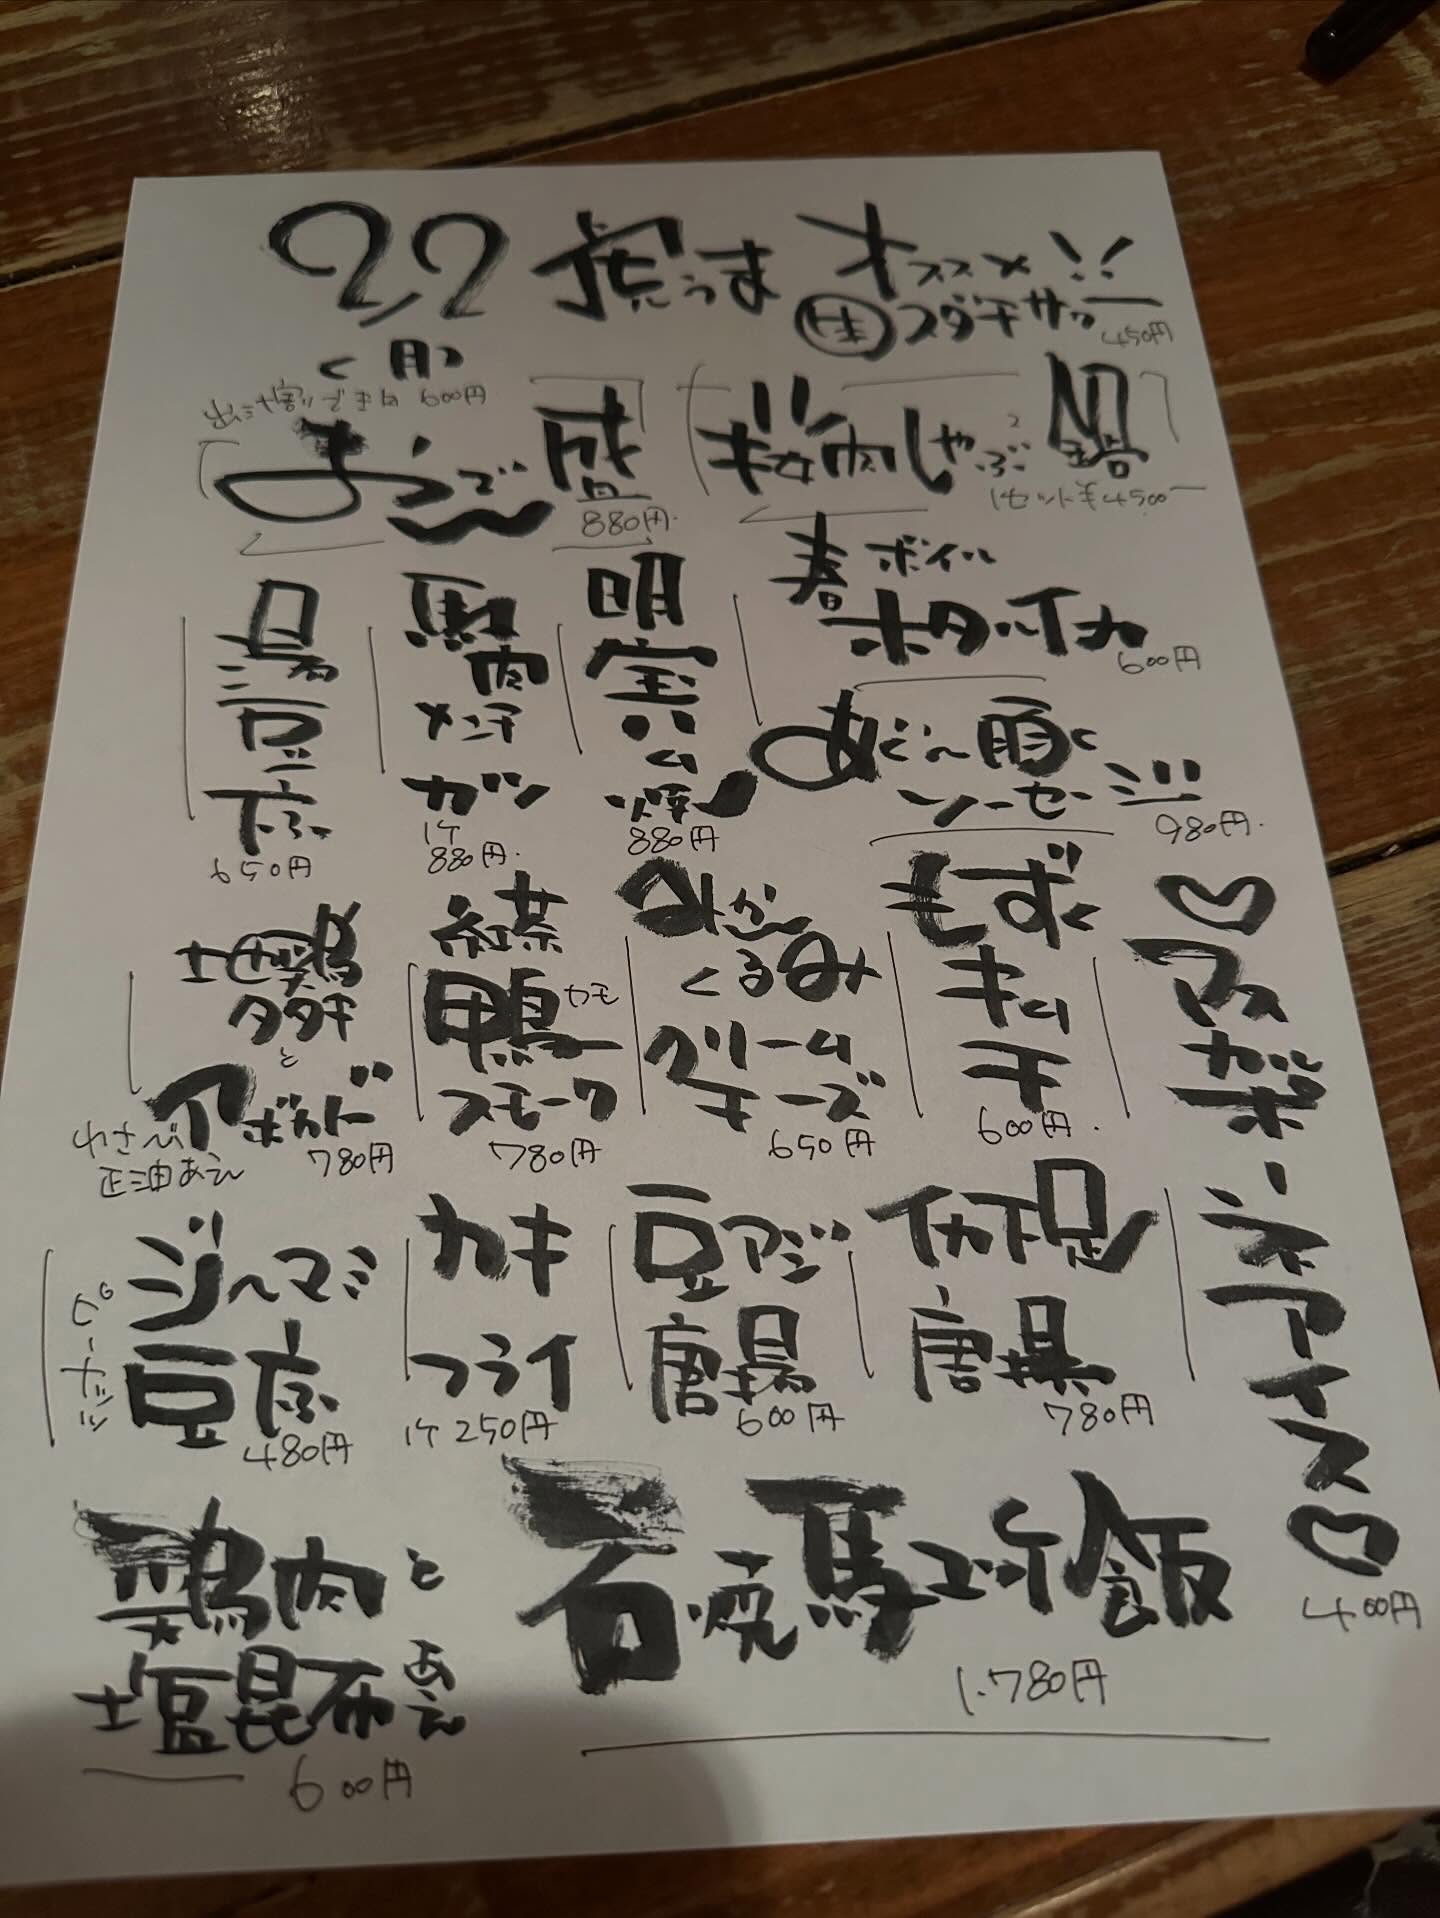 2/2 虎うま オススメ!!
<月>
生スダチサワー
450円
出汁割りできる 600円
おでん盛
880円
桜肉しゃぶ2鍋
1セット¥4500ー
湯豆腐
650円
馬肉メンチカツ
1ケ
880円.
明宝ハム焼
880円
春 ボイル
ホタルイカ
600円
あぐー豚く
ソーセージ
980円.
土鶏タタキ
と
アボカド
わさび
正油あえ
780円
紅茶
鴨 カモ
スモーク
780円
みかん
くるみ
クリーム
チーズ
650円
もずく
キムチ
600円.
♡
マスカルポーネアイス
♡
400円
ピーナッツ
ジーマミ
豆腐
480円
カキ
フライ
1ケ 250円
豆アジ
唐揚
600円
イカ下足
唐揚
780円
鶏肉と
塩昆布あえ
600円
石焼馬ユッケ飯
1.780円